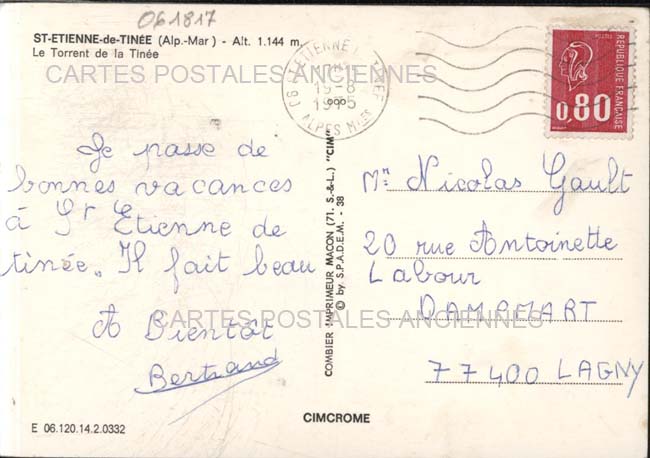 061817
ST-ETIENNE-de-TINÉE (Alp.-Mar) - Alt. 1.144 m.
Le Torrent de la Tinée
CARTES POSTALES ANCIENNES
ETIENNE
19-8
1975
ALPES MMES
REPUBLIQUE FRANÇAISE
0,80
Je passe de
bonnes vacances
à St Etienne de
tinée. Il fait beau
A Bientôt
Bertrand
COMBIER IMPRIMEUR MACON (71. S.-&-L.) "CIM"
© by S.P.A.D.E.M. - 38
Mr Nicolas Gault
20 rue Antoinette
Labour
DAMPMART
77400 LAGNY
CARTES POSTALES ANCIENNES
CIMCROME
E 06.120.14.2.0332